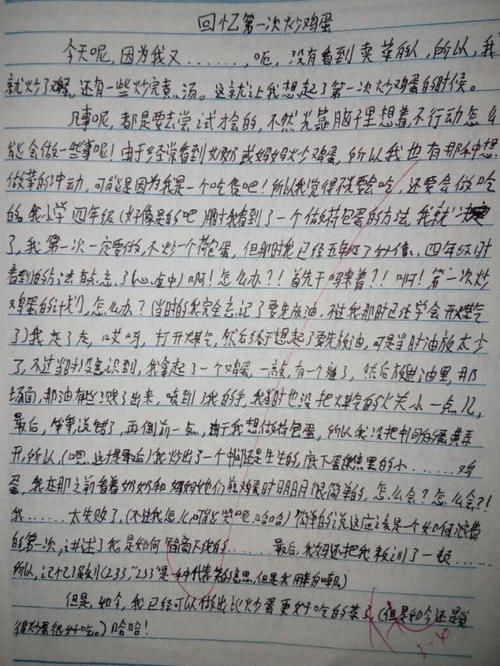 回忆第一次炒鸡蛋
今天呢,因为我又........,呃,没有看到卖菜的人,所以,我
就炒了鸡蛋,还有一些炒完煮汤。这就让我想起了第一次炒鸡蛋的时候。
凡事呢,都是要去尝试才会的,不然光靠脑子里想着不行动怎么
能会做一些事呢!由于经常看到奶奶或妈妈炒鸡蛋,所以我也有那种想
做菜的冲动,可能是因为我是一个吃货吧!所以我觉得不光会吃,还要会做吃
的。我小学四年级(好像是的吧)那时我看到了一个做荷包蛋的方法,我就决定
了,我第一次一定要做,不炒一个荷包蛋,但那时我已经五年级了,四年级时
看到的方法有点忘了(心虚中)啊!怎么办?!首先干吗来着?!啊!第一次炒
鸡蛋的计划,怎么办?(当时的我完全忘记了要先放油,不过我那时已经学会开煤气
了)我,哎呀,打开煤气,然后终于想起了要先放油,可是当时油放太少
了,不过当时没意识到,我拿起了一个鸡蛋,一敲,有一个缝了,然后放进油里,那
场面,那油有些溅了出来,喷到了我的手,我当时也没把煤气的火关小一点儿,
最后,等等说错了,再倒前一点,由于我想做荷包蛋,所以我没把中间的蛋黄弄
开,所以,(嗯,这才是最后)我炒出了一个中间还是生生的,底下蛋焦黑的小......鸡
蛋,我在那之前看着奶奶和妈妈他们煎鸡蛋时明明很简单的,怎么会?怎么会?!
我........太失败了,(不过我怎么可能哭呢,哈哈)简单的说这应该是一个如何浪费
的第一次,讲述了我是如何 最后,我妈还把我教训了一顿......
所以,记忆深刻(233,"233"是一种表笑的意思,但是我用来自嘲)
但是,如今,我已经可以做出比炒蛋更好吃的菜了(但是如今还是觉
得炒蛋很好吃。)哈哈!